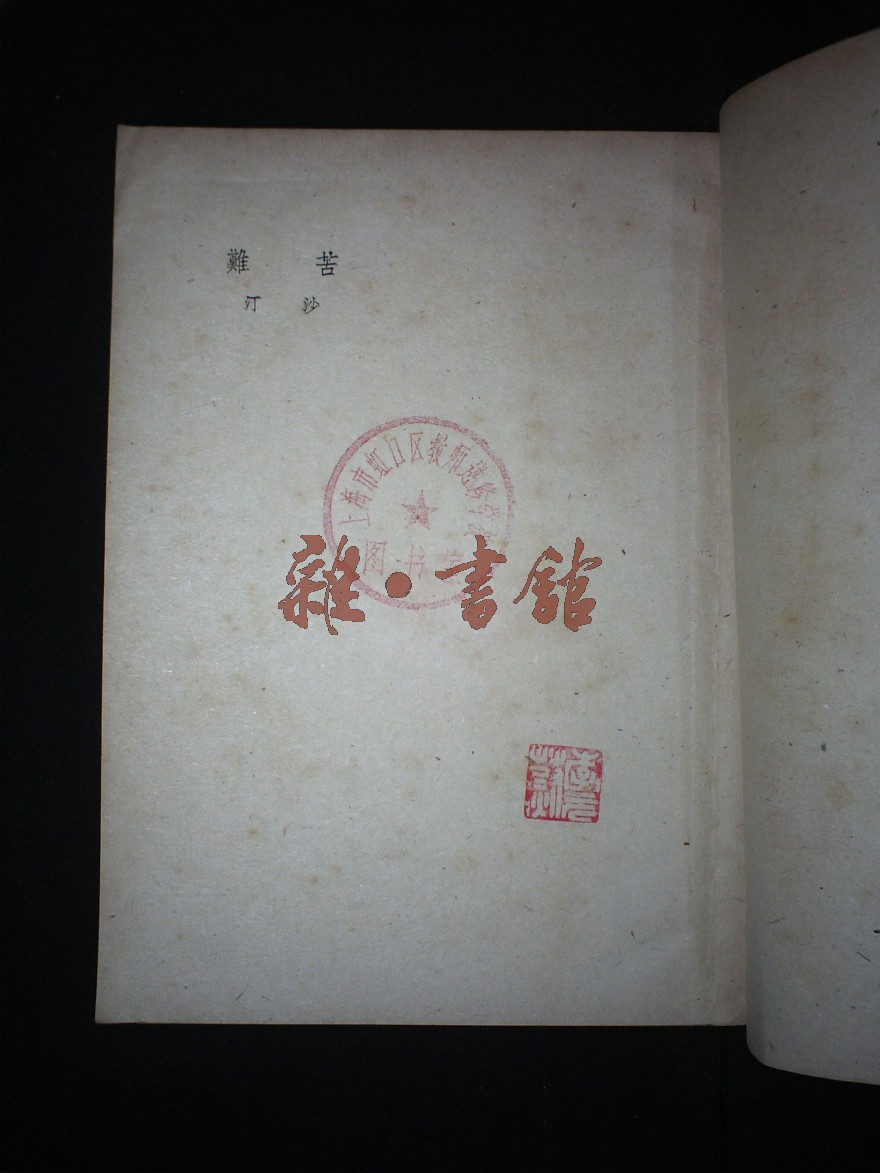 苦難
沙汀
上海市虹口区教师进修学院
图书室
雜·書館